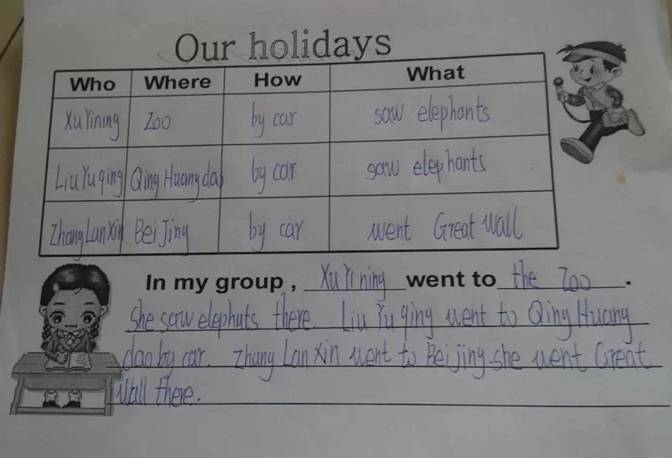 Our holidays
Who Where How What
Xu Yining Zoo by car saw elephants
Liu Yu qing Qing Huang dao by car saw elephants
Zhang Lan Xin Bei Jing by car went Great Wall
In my group , Xu Yi ning went to the Zoo .
She saw elephuts there. Liu Yu qing went to Qing Huang
dao by car. Zhang Lan Xin went to Bei jing. she went Great
Wall there.